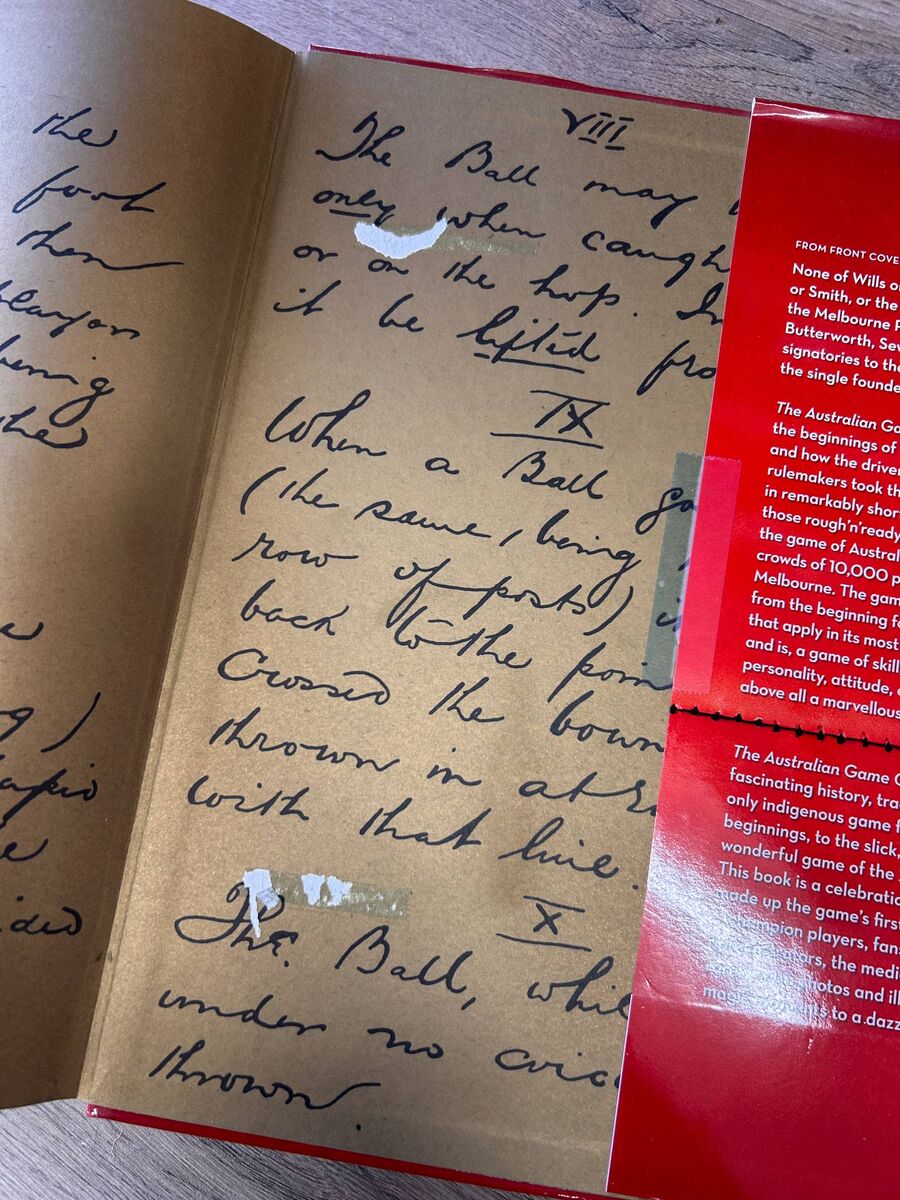 the
foot
then
being
the
VIII
The Ball may
only when caugh
or on the hop. In
it be lifted fro
IX
When a Ball go
(the same, being
row of posts) i
back to the poin
Crossed the boun
thrown in at
with that line.
X
The Ball, whil
under no
thrown
FROM FRONT COVE
None of Wills o
or Smith, or the
the Melbourne P
Butterworth, Sev
signatories to the
the single founde
The Australian Ga
the beginnings of
and how the driver
rulemakers took th
in remarkably shor
those rough'n'ready
the game of Austral
crowds of 10,000 p
Melbourne. The gam
from the beginning fo
that apply in its most
and is, a game of skill
personality, attitude,
above all a marvellous
The Australian Game
fascinating history, tra
only indigenous game f
beginnings, to the slick,
wonderful game of the
This book is a celebratio
made up the game's first
champion players, fans
the medi
photos and ill
to a dazz